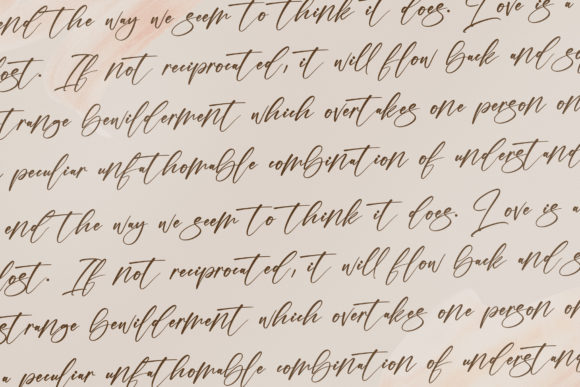 end the way we seem to think it does. Love is a
lost. If not reciprocated, it will flow back and
strange bewilderment which overtakes one person on
a peculiar unfathomable combination of understand
end the way we seem to think it does. Love is a
lost. If not reciprocated, it will flow back and s
strange bewilderment which overtakes one person on
a peculiar unfathomable combination of understand